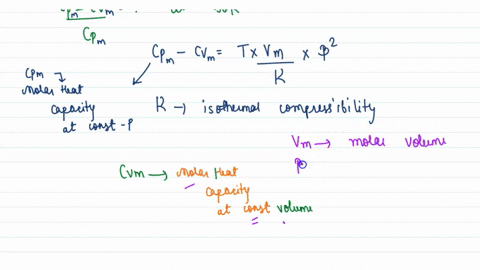 Cpm
Cpm - Cvm = T x Vm x β²
K
Cpm
Molar Heat
capacity
at const - P
K → isothermal compressibility
Vm → molar volume
β
Cvm → Molar Heat
capacity
at const volume